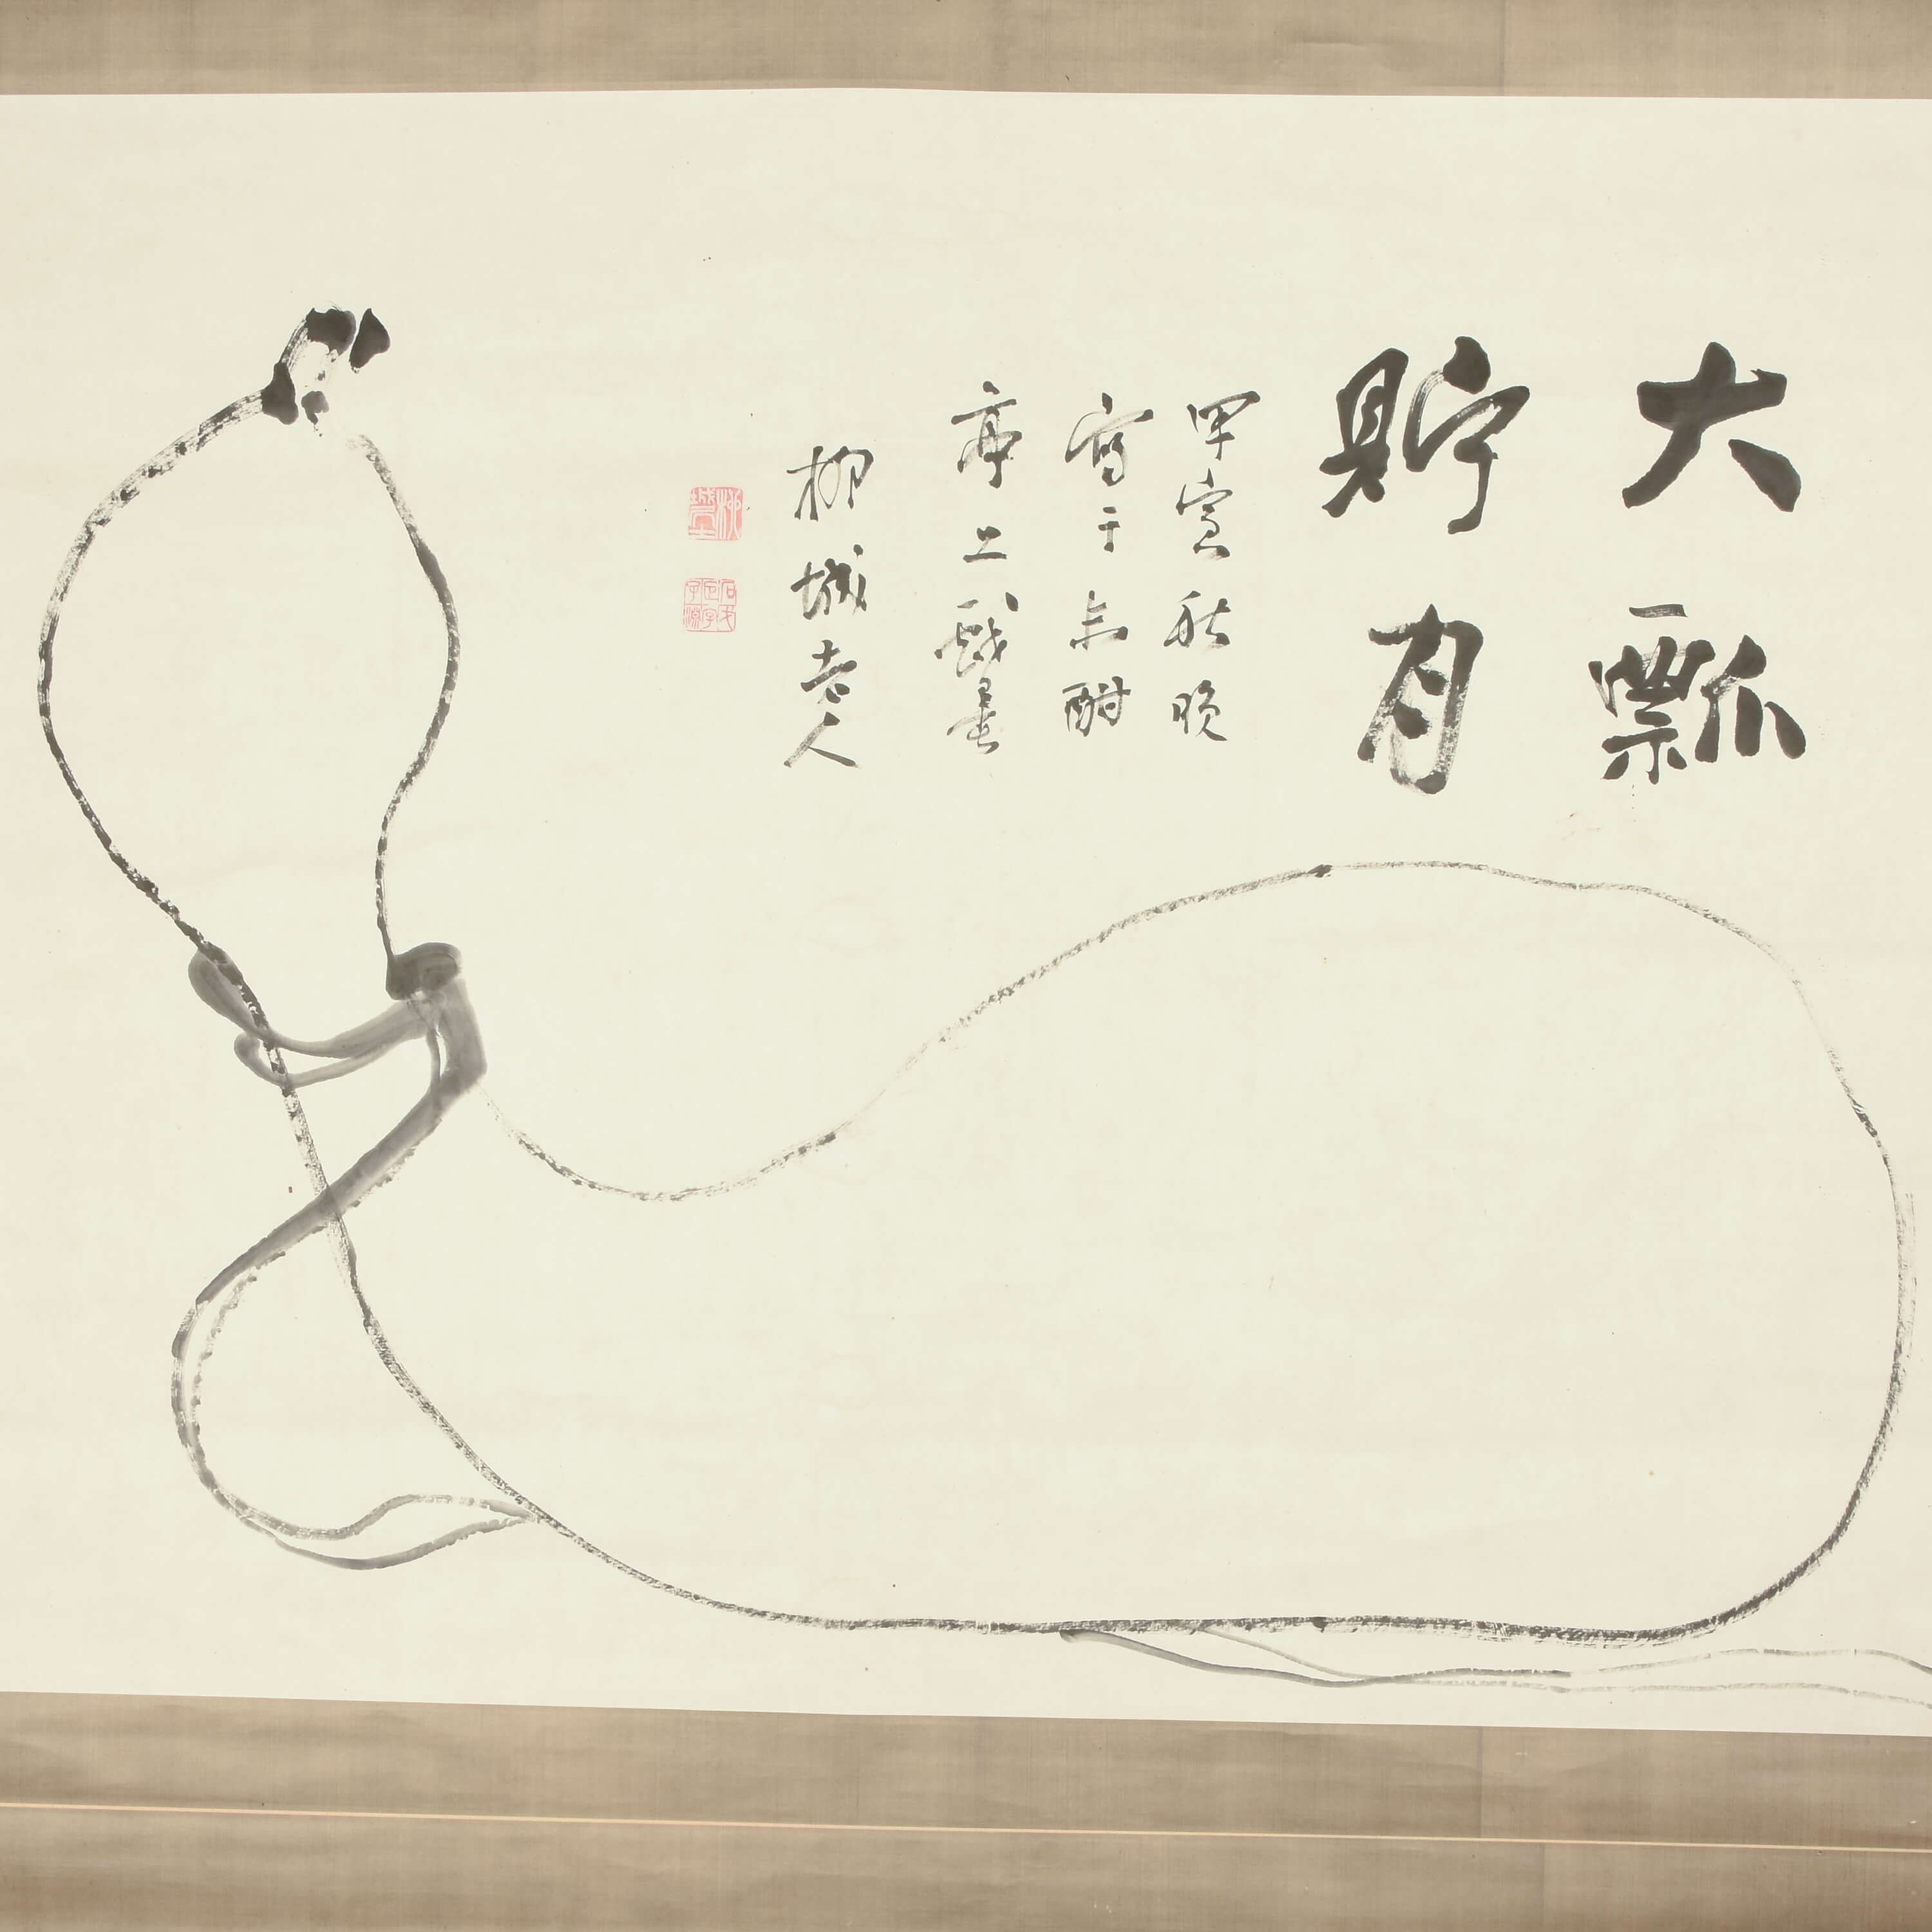 大瓢
貯月
甲寅秋晩
寫于点酣
亭上戯墨
柳城老人